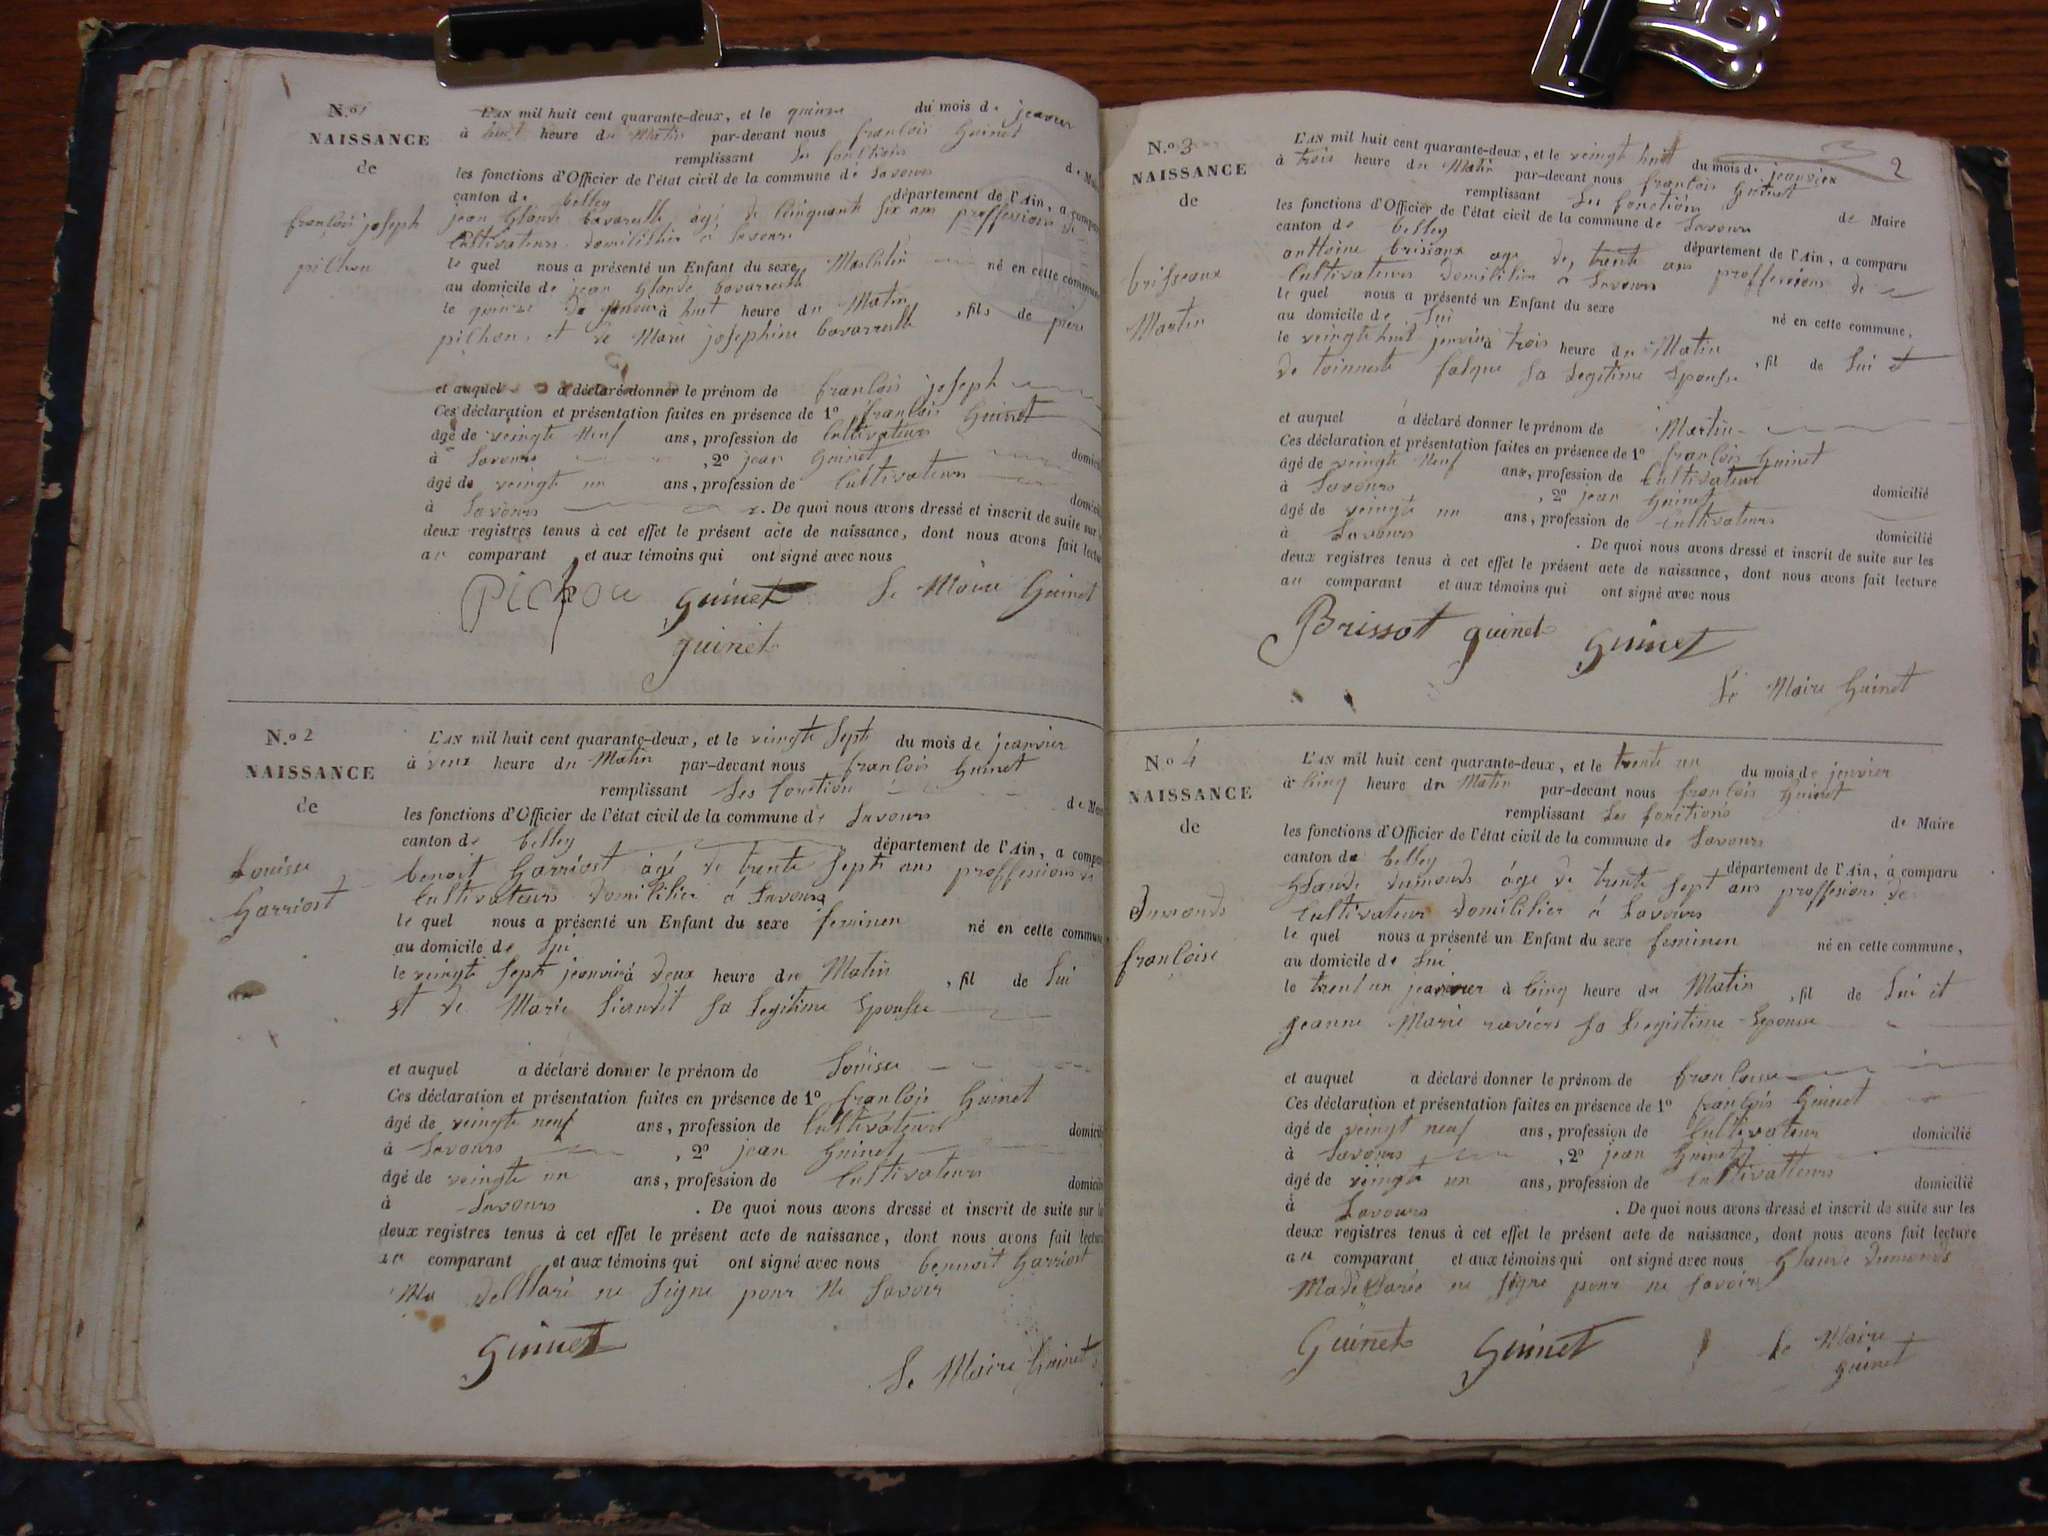 N.º 1
NAISSANCE
de
françois joseph
pichon
L'AN mil huit cent quarante-deux, et le quinze du mois de jeanvier
à huit heure du Matin par-devant nous françois Guinet
remplissant Les fonctions de Mai
les fonctions d'Officier de l'état civil de la commune de Savours
canton de belley département de l'Ain, a compar
jean Glaude bavarelle, âgé de Cinquante Six ans proffessions de
Cultivateurs domicillier à Savours
le quel nous a présenté un Enfant du sexe Masculin né en cette commune
au domicile de jean Glaude bavarrelle
le quinze De jenvier à huit heure du Matin, fils de pière
pichon et de Marie josephine bavarrelle
et auquel a déclaré donner le prénom de françois joseph
Ces déclaration et présentation faites en présence de 1º françois Guinet
âgé de veingte Neuf ans, profession de Cultivateurs
à Savours , 2º jean Guinet domicili
âgé de veingte un ans, profession de Cultivateurs
à Savours domicili
. De quoi nous avons dressé et inscrit de suite sur l
deux registres tenus à cet effet le présent acte de naissance, dont nous avons fait lectur
au comparant et aux témoins qui ont signé avec nous
Pichou guinet Le Maire Guinet
guinet
N.º 2
NAISSANCE
de
Louise
Garriost
L'AN mil huit cent quarante-deux, et le veingte Sept du mois de jeanvier
à deux heure du Matin par-devant nous françois Guinet
remplissant Les fonction de Mai
les fonctions d'Officier de l'état civil de la commune de Savours
canton de belley département de l'Ain, a compar
benoit Garriost âgé de trente Sept ans proffessions de
Cultivateurs domicilier à Savours
le quel nous a présenté un Enfant du sexe feminen né en cette commune
au domicile de Lui
le veingte Sept jeanvier à deux heure du Matin, fil de Lui
et de Marie Sa Legitime Epousse
et auquel a déclaré donner le prénom de Louise
Ces déclaration et présentation faites en présence de 1º françois Guinet
âgé de veingte neuf ans, profession de Cultivateurs
à Savours , 2º jean Guinet domicili
âgé de veingte un ans, profession de Cultivateurs domicili
à Savours . De quoi nous avons dressé et inscrit de suite sur l
deux registres tenus à cet effet le présent acte de naissance, dont nous avons fait lectur
au comparant et aux témoins qui ont signé avec nous bennoit Garriost
Ma declaré ne Signe pour Ne Savoir
guinet
Le Maire Guinet
2
N.º 3
NAISSANCE
de
brisseaux
Martin
L'AN mil huit cent quarante-deux, et le veingte huit du mois de jeanvier
à trois heure du Matin par-devant nous françois Guinet
remplissant Les fonctions de Maire
les fonctions d'Officier de l'état civil de la commune de Savours
canton de belley département de l'Ain, a comparu
anttoine brissaux age de, trente ans proffessions de
Cultivateurs domicilier à Savours
le quel nous a présenté un Enfant du sexe né en cette commune,
au domicile de Lui
le veingte huit jenvier à trois heure du Matin, fil de Lui et
de toinnette falque Sa Legitime Epousse
et auquel a déclaré donner le prénom de Martin
Ces déclaration et présentation faites en présence de 1º françois Guinet
âgé de veingte Neuf ans, profession de Cultivateurs
à Savours , 2º jean Guinet domicilié
âgé de veingte un ans, profession de Cultivateurs
à Savours domicilié
. De quoi nous avons dressé et inscrit de suite sur les
deux registres tenus à cet effet le présent acte de naissance, dont nous avons fait lecture
au comparant et aux témoins qui ont signé avec nous
Brissot guinet guinet
Le Maire Guinet
Nº 4
NAISSANCE
de
Dumonds
françoise
L'AN mil huit cent quarante-deux, et le trente un du mois de jenvier
à Cinq heure du Matin par-devant nous françois Guinet
remplissant Les fonctions de Maire
les fonctions d'Officier de l'état civil de la commune de Savours
canton de belley département de l'Ain, à comparu
Glaude dumonds âge de trente Sept ans proffessions de
Cultivateur domicilier à Savours
le quel nous a présenté un Enfant du sexe feminen né en cette commune,
au domicile de Lui
le trent un jeanvier à Cinq heure du Matin, fil de Lui et
jeanne Marie raviers Sa Legistime Epousse
et auquel a déclaré donner le prénom de françoise
Ces déclaration et présentation faites en présence de 1º françois Guinet
âgé de veingt neuf ans, profession de Cultivateur
à Savours , 2º jean Guinet domicilié
âgé de veingte un ans, profession de Cultivateurs domicilié
à Savours . De quoi nous avons dressé et inscrit de suite sur les
deux registres tenus à cet effet le présent acte de naissance, dont nous avons fait lecture
au comparant et aux témoins qui ont signé avec nous Glaude dumonds
Ma declarée ne Signe pour ne Savoir
Guinet guinet Le Maire
guinet